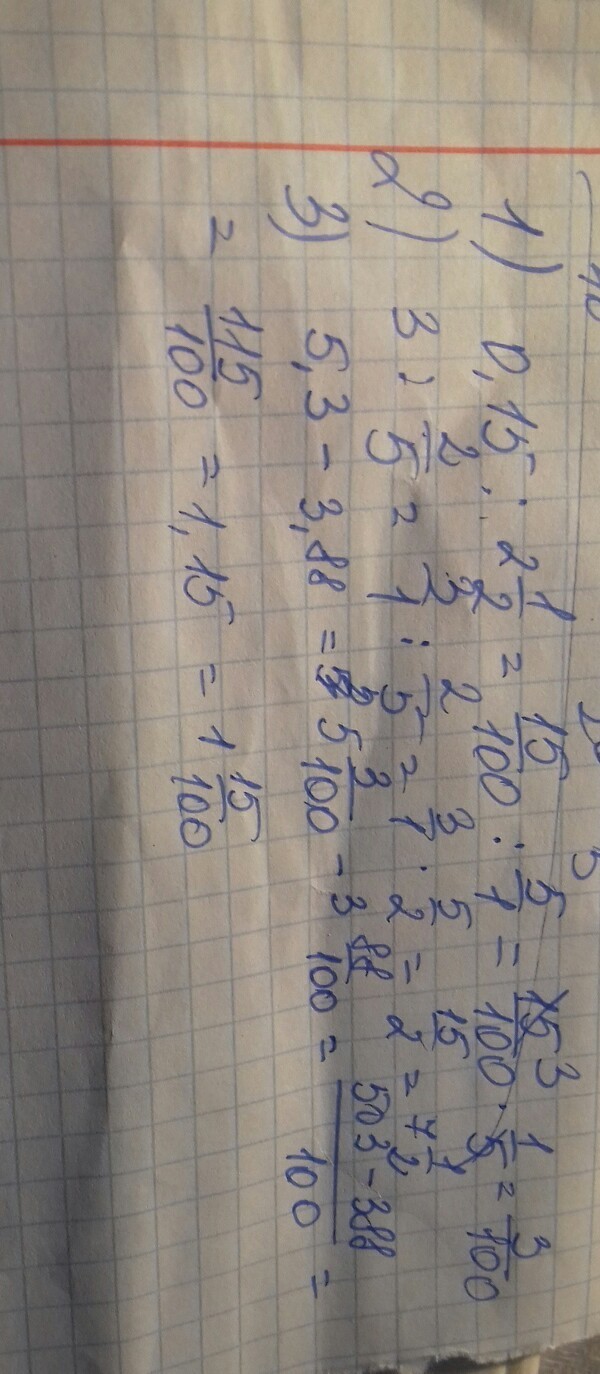 1) 0,15 : 2 1/2 = 15/100 : 5/1 = 15 3/100 · 1/5 = 3/100
2) 3 : 2/5 = 3/1 : 2/5 = 3/1 · 5/2 = 15/2 = 7 1/2
3) 5,3 - 3,88 = 5 3/100 - 3 88/100 = 503 - 388/100 =
= 115/100 = 1,15 = 1 15/100